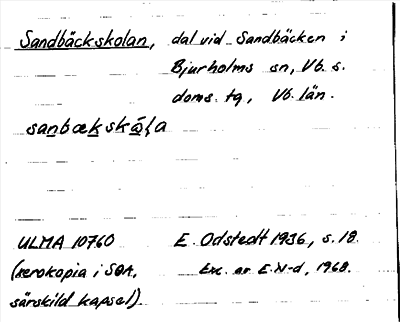 Sandbäckskolan, dal vid Sandbäcken i
Bjurholms sn, Vb. s.
doms. tg, Vb. län.
sanbækskå̀ļa
ULMA 10760 E. Odstedt 1936, s. 18.
(xerokopia i SOA, Exc. av E. N-d, 1968.
särskild kapsel)